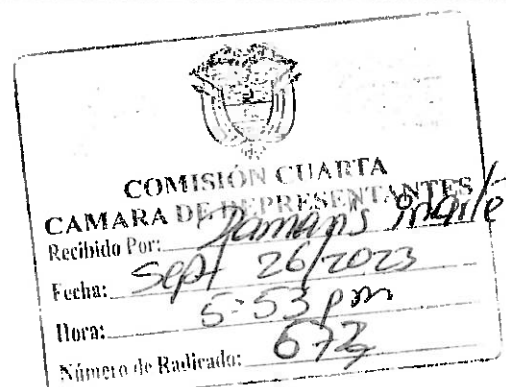 COMISIÓN CUARTA
CAMARA DE REPRESENTANTES
Recibido Por: Damaris
Fecha: Sept 26/2023
Hora: 5:53 pm
Número de Radicado: 672